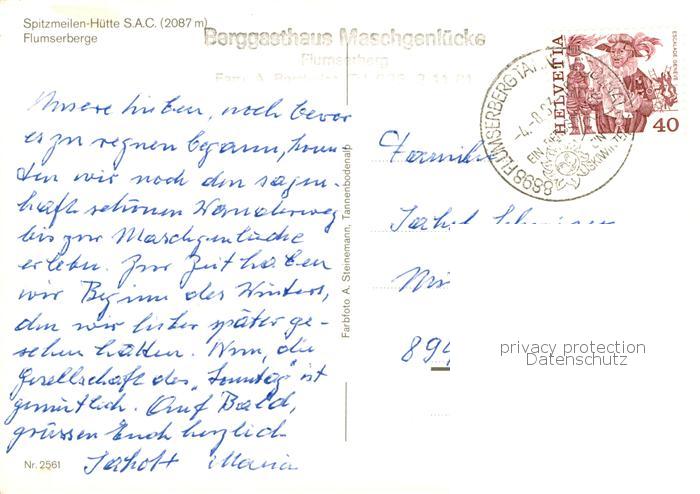 Spitzmeilen-Hütte S.A.C. (2087 m)
Flumserberge
Berggasthaus Maschgenlücke
Flumserberg
Unsere Lieben, noch bevor
es zu regnen begann, konn-
ten wir noch den sagen-
haft schönen Wanderweg
bis zur Maschgenlücke
erleben. Zur Zeit haben
wir Beginn des Winters,
den wir lieber später ge-
sehen hätten. Nun, die
Gesellschaft des "Sonntag" ist
gemütlich. Auf Bald,
grüssen Euch herzlich
Jakob + Maria
Nr. 2561
Farbfoto A. Steinemann, Tannenbodenalp
HELVETIA
ESCALADE GENÈVE
40
8898 FLUMSERBERG
Familie
Jakob
894
privacy protection
Datenschutz